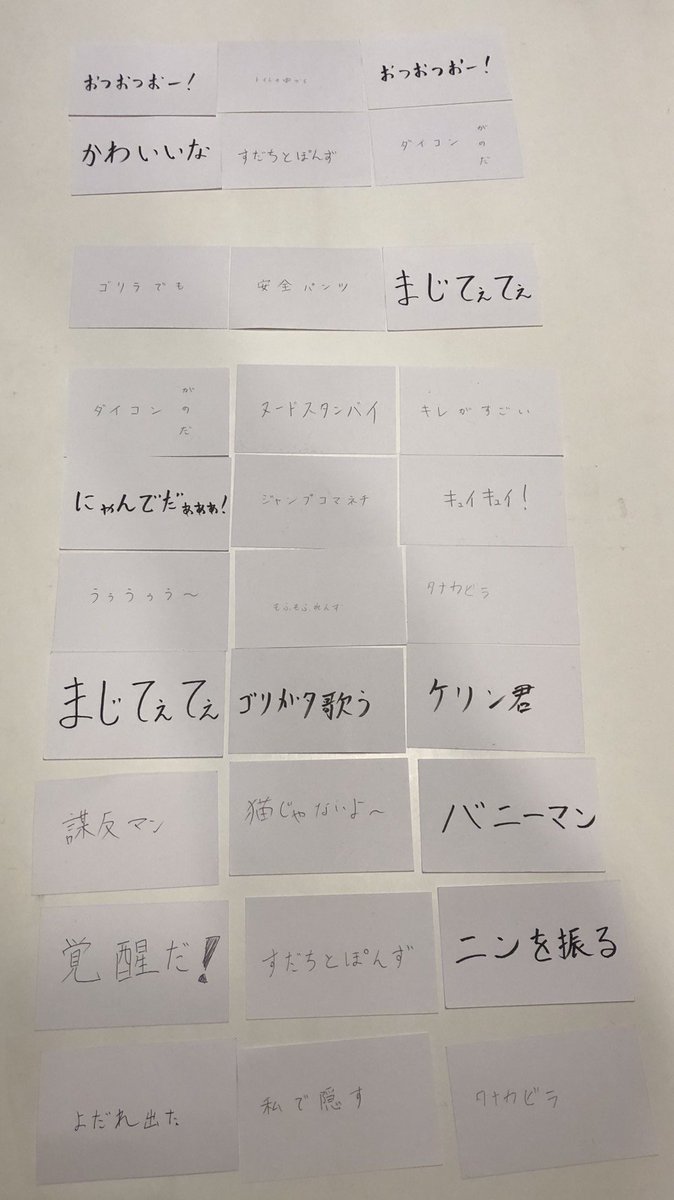 おつおつおー!
おつおつおー!
かわいいな
すだちとぽんず
ダイコン
がのだ
ゴリラでも
安全パンツ
まじてぇてぇ
ダイコン
がのだ
ヌードスタンバイ
キレがすごい
にゃんでだぁぁぁ!
ジャンプコマネチ
キュイキュイ!
うぅうぅう〜
もふもふれんす
タナカビラ
まじてぇてぇ
ゴリがタ歌う
ケリン君
謀反マン
猫じゃないよ〜
バニーマン
覚醒だ!
すだちとぽんず
ニンを振る
よだれ出た
私で隠す
タナカビラ